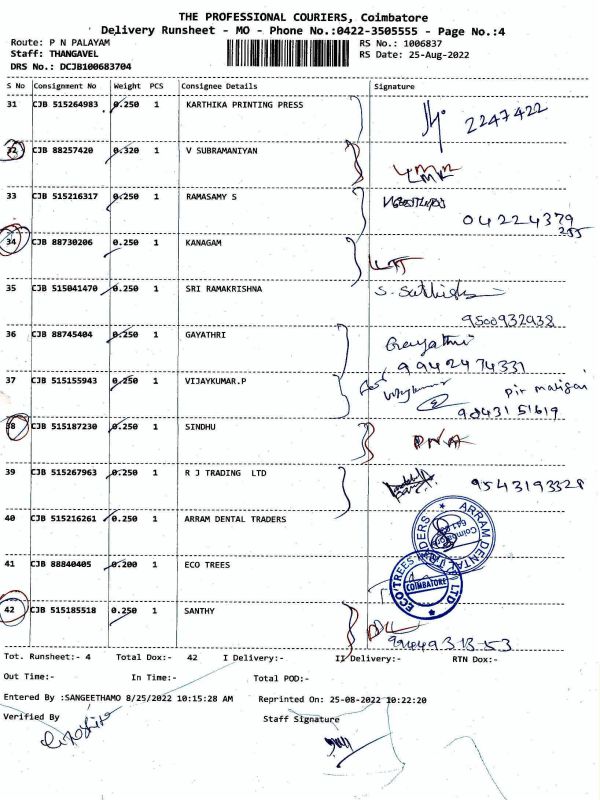 THE PROFESSIONAL COURIERS, Coimbatore
Delivery Runsheet - MO - Phone No.:0422-3505555 - Page No.:4
Route: P N PALAYAM RS No.: 1006837
Staff: THANGAVEL RS Date: 25-Aug-2022
DRS No.: DCJB100683704
S No Consignment No Weight PCS Consignee Details Signature
31 CJB 515264983 0.250 1 KARTHIKA PRINTING PRESS
2247422
32 CJB 88257420 0.320 1 V SUBRAMANIYAN
33 CJB 515216317 0.250 1 RAMASAMY S
04224379
255
34 CJB 88730206 0.250 1 KANAGAM
35 CJB 515041470 0.250 1 SRI RAMAKRISHNA
36 CJB 88745404 0.250 1 GAYATHRI Gayathri
9942474331
37 CJB 515155943 0.250 1 VIJAYKUMAR.P
38 CJB 515187230 0.250 1 SINDHU
39 CJB 515267963 0.250 1 R J TRADING LTD
9543193328
40 CJB 515216261 0.250 1 ARRAM DENTAL TRADERS
ARRAM DENTAL TRADERS
41 CJB 88840405 0.200 1 ECO TREES
ECO TREES LTD
COIMBATORE
42 CJB 515185518 0.250 1 SANTHY DL
Tot. Runsheet:- 4 Total Dox:- 42 I Delivery:- II Delivery:- RTN Dox:-
Out Time:- In Time:- Total POD:-
Entered By :SANGEETHAMO 8/25/2022 10:15:28 AM Reprinted On: 25-08-2022 10:22:20
Verified By Staff Signature